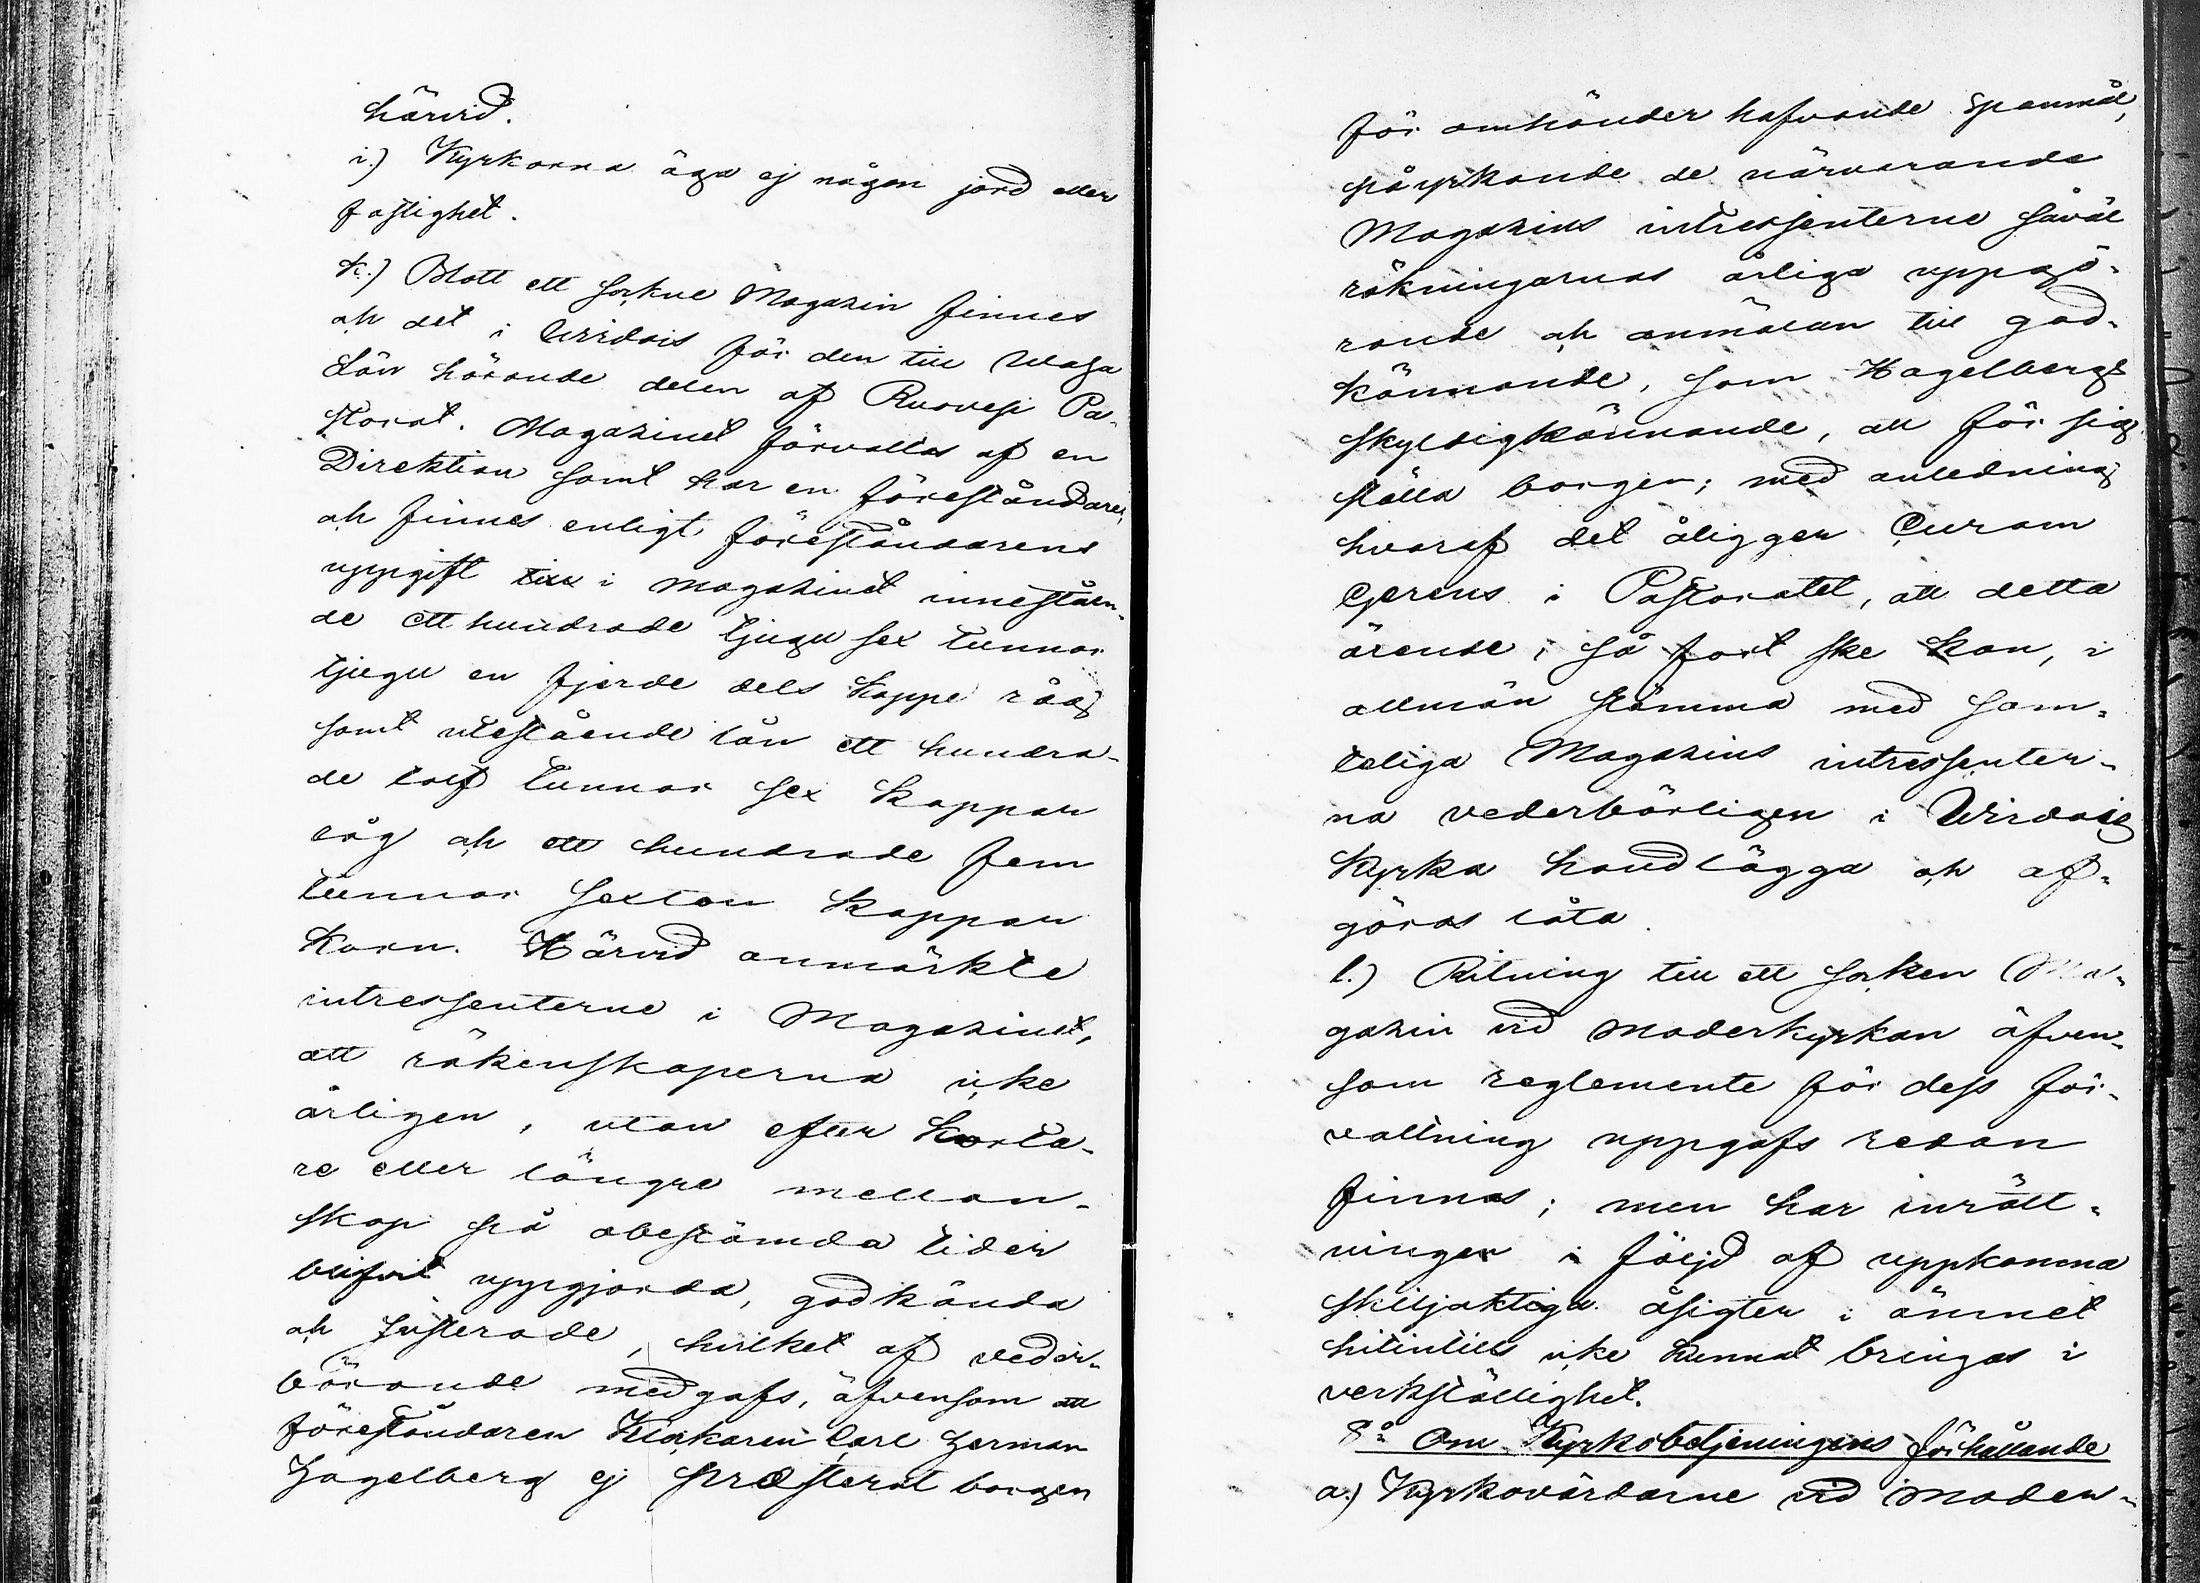 härvid.
i.) Kyrkorna äga ej någon jord eller
fastighet.
k.) Blott ett socknе Magazin finnes
och det i Wirdois för den till Wasa
Län hörande delen af Ruovesi Pa-
storat. Magazinet förvaltas af en
Direktion samt har en föreståndare,
och finnes enligt föreståndarens
uppgift till i magazinet inneståen-
de ett hundrade tjugu sex tunnor
tjugu en fjerde dels kappe råg
samt utestående lån ett hundra-
de tolf tunnor sex kappar
råg och ett hundrade fem
tunnor sexton kappar
Korn. Härvid anmärkte
intressenterne i Magazinet,
att räkenskaperna icke
årligen, utan efter korta-
re eller längre mellan-
skap på obestämda tider
blifvit uppgjorda, godkända
och justerade, hvilket af veder-
börande medgafs, äfvensom att
föreståndaren Klockaren Carl Herman
Hagelberg ej præsterat borgen
för omhänder hafvande Spanmål,
påyrkande de närvarande
Magazins intressenterne såväl
räkningarnas årliga uppgö-
rande och anmälan till god-
kännande, som Hagelbergs
skyldigkännande, att för sig
ställa borgen; med anledning
hvaraf det åligger Curam
Gerens i Pastoratet, att detta
ärende, så fort ske kan, i
allmän stämma med sam-
teliga Magazins intressenter-
na vederbörligen i Wirdois
Kyrka handlägga och af-
göras låta.
l.) Ritning till ett socken Ma-
gazin vid moderkyrkan äfven-
som reglemente för dess för-
valtning uppgafs redan
finnas; men har inrätt-
ningen i följd af uppkomna
skiljaktiga åsigter i ämnet
hitintills icke kunnat bringas i
verkställighet.
8:o Om Kyrkobetjeningens förhållande
a.) Kyrkovärdarne vid moder-